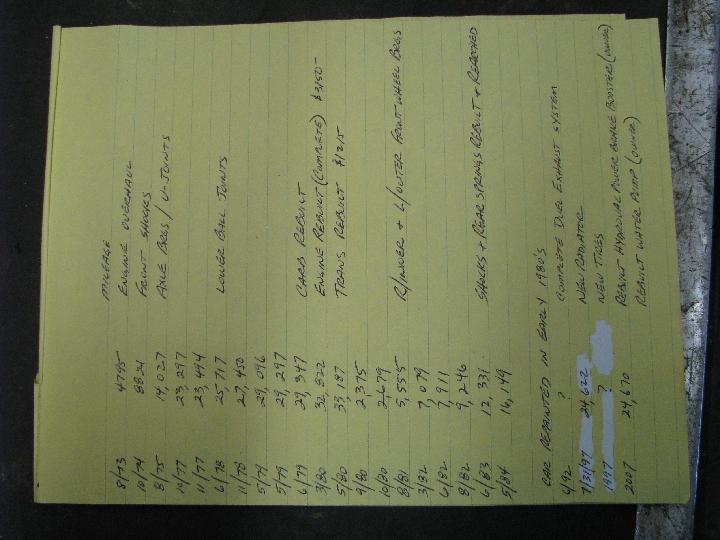 MILEAGE
8/73 4795 ENGINE OVERHAUL
10/74 8824 FRONT SHOCKS
8/75 14,027 AXLE BRGS/U-JOINTS
10/77 23,297
11/77 23,494
6/78 25,717 LOWER BALL JOINTS
11/78 27,450
5/79 29,096
5/79 29,297
6/79 29,347 CARB REBUILT
3/80 32,822 ENGINE REBUILT (COMPLETE) $3150-
5/80 33,187 TRANS REBUILT $1215
9/80 2,375
10/80 2,679
8/81 5,555 R/INNER + L/OUTER FRONT WHEEL BRGS
3/82 7,079
6/82 7,911
8/82 9,246
6/83 12,331 SHOCKS + REAR SPRINGS REBUILT + REARCHED
5/84 16,149
CAR REPAINTED IN EARLY 1980'S
4/92 ? COMPLETE DUEL EXHAUST SYSTEM
7/31/97 24,622 NEW RADIATOR
1997 ? NEW TIRES
2007 24,670 REBUILT HYDROVAC POWER BRAKE BOOSTER (OWNER)
REBUILT WATER PUMP (OWNER)